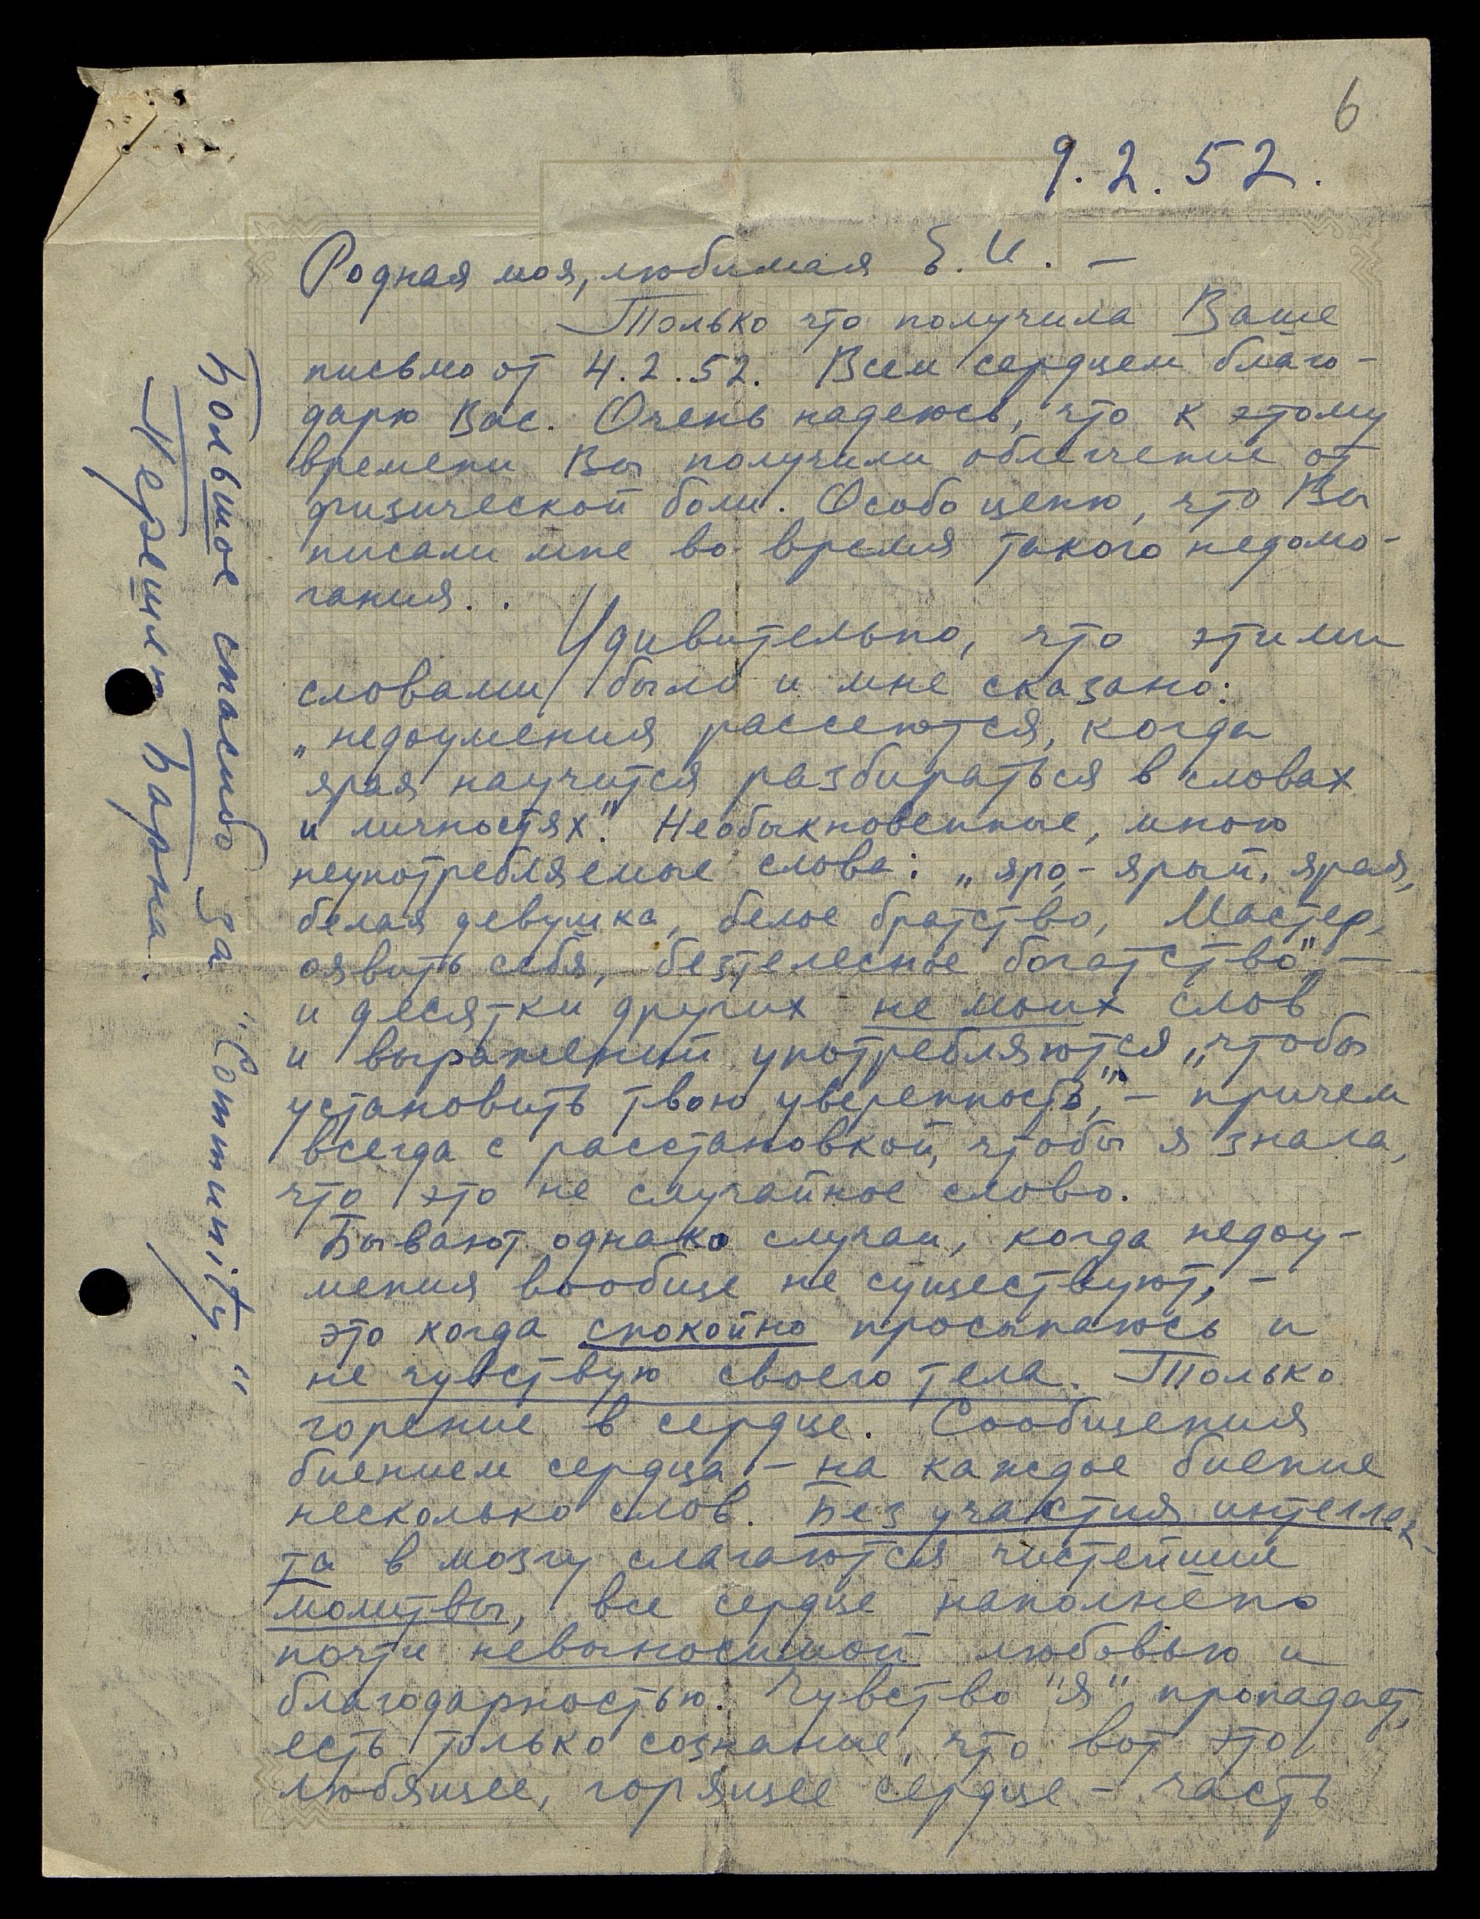 6
9.2.52.
Родная моя, любимая Е.И. –
Только что получила Ваше
письмо от 4.2.52. Всем сердцем благо-
дарю Вас. Очень надеюсь, что к этому
времени Вы получили облегчение от
физической боли. Особо ценю, что Вы
писали мне во время такого недомо-
гания..
Удивительно, что этими
словами были и мне сказано:
„недоумения рассеются, когда
ярая научится разбираться в словах
и личностях". Необыкновенные, мною
неупотребляемые слова: „яро, – ярый, ярая,
белая девушка, белое братство, Мастер,
оявить себя, безтелесное богатство", –
и десятки других не моих слов
и выражений употребляются „чтобы
установить твою уверенность", – причем
всегда с расстановкой, чтобы я знала,
что это не случайное слово.
Бывают однако случаи, когда недоу-
мения вообще не существуют, –
это когда спокойно просыпаюсь и
не чувствую своего тела. Только
горение в сердце. Сообщения
биением сердца – на каждое биение
несколько слов. Без участия интеллек-
та в мозгу слагаются чистейшие
молитвы, все сердце наполнено
почти невыносимой любовью и
благодарностью. Чувство "я" пропадает,
есть только сознание, что вот это
любящее, горящее сердце – часть
Большое спасибо за "Community"
Перешлю Барна.